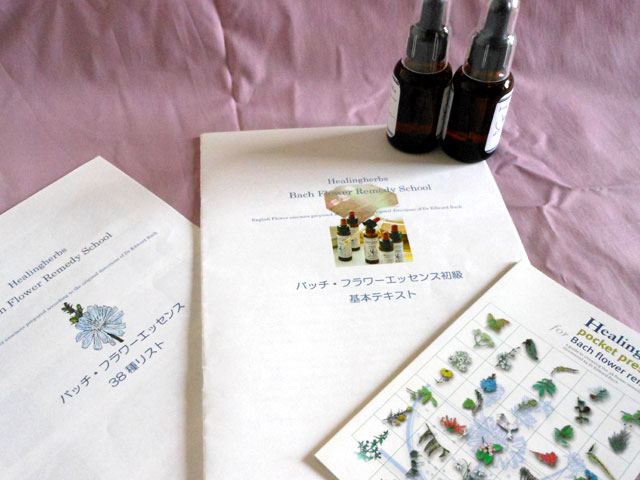 Healingherbs
Bach Flower Remedy School
English Flower essences prepared according to the original directions of Dr Edward Bach
バッチ・フラワーエッセンス初級
基本テキスト
Healingherbs
Flower Remedy School
essences prepared according to the original directions of Dr Edward Bach
バッチ・フラワーエッセンス
38種リスト
pocket
for Bach flower